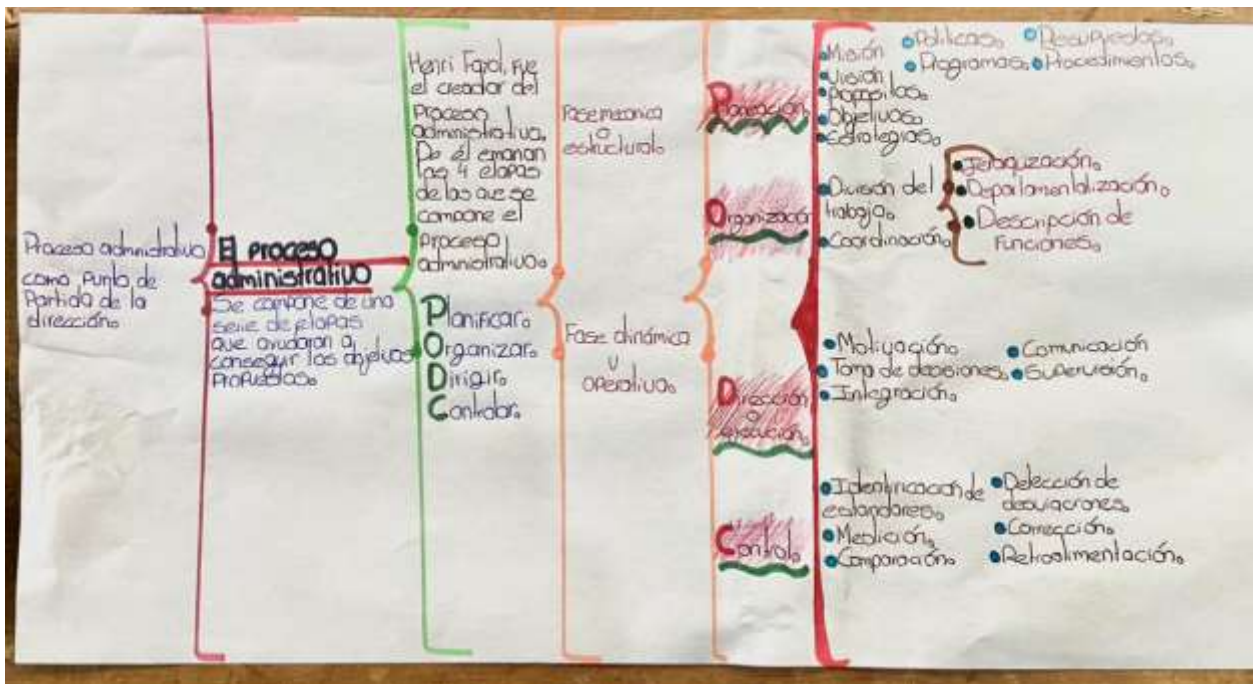 Proceso administrativo
como punto de
Partida de la
dirección.
El proceso
administrativo
Se compone de una
serie de etapas
que ayudaran a
conseguir los objetivos
propuestos.
Henri Fayol, fue
el creador del
Proceso
administrativo.
De él emanan
las 4 etapas
de las que se
compone el
Proceso
administrativo.
Planificar.
Organizar.
Dirigir.
Controlar.
Fase mecanica
o
estructural.
Fase dinámica
u
operativa.
Planeación.
Misión
Visión
Propositos.
Objetivos.
Estrategias.
Politicas.
Programas.
Presupuestos.
Procedimientos.
Organización
División del
trabajo.
Coordinación.
Jerarquización.
Departamentalización.
Descripción de
Funciones.
Dirección
o
ejecución.
Motivación.
Toma de decisiones.
Integración.
Comunicación
Supervisión.
Control.
Identificación de
estandares.
Medición.
Comparación.
Detección de
desviaciones.
Corrección.
Retroalimentación.